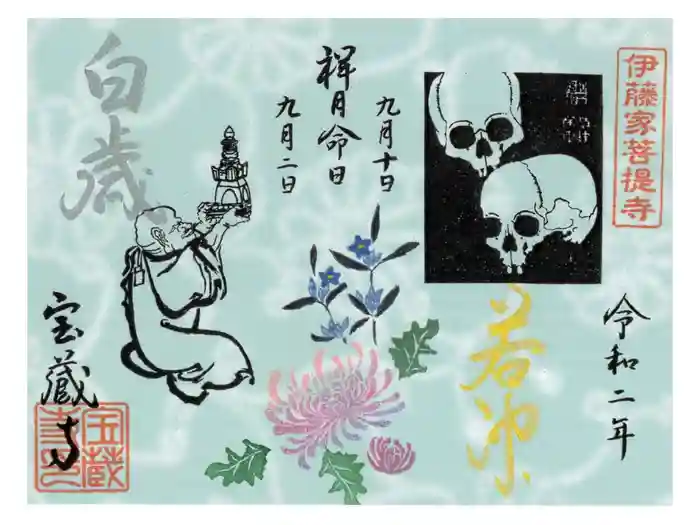 伊藤家菩提寺
令和二年
若冲
九月十日
祥月命日
九月二日
白歳
宝蔵寺
宝蔵
寺印